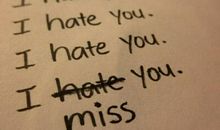 I hate you.
I hate you.
I hate you.
miss